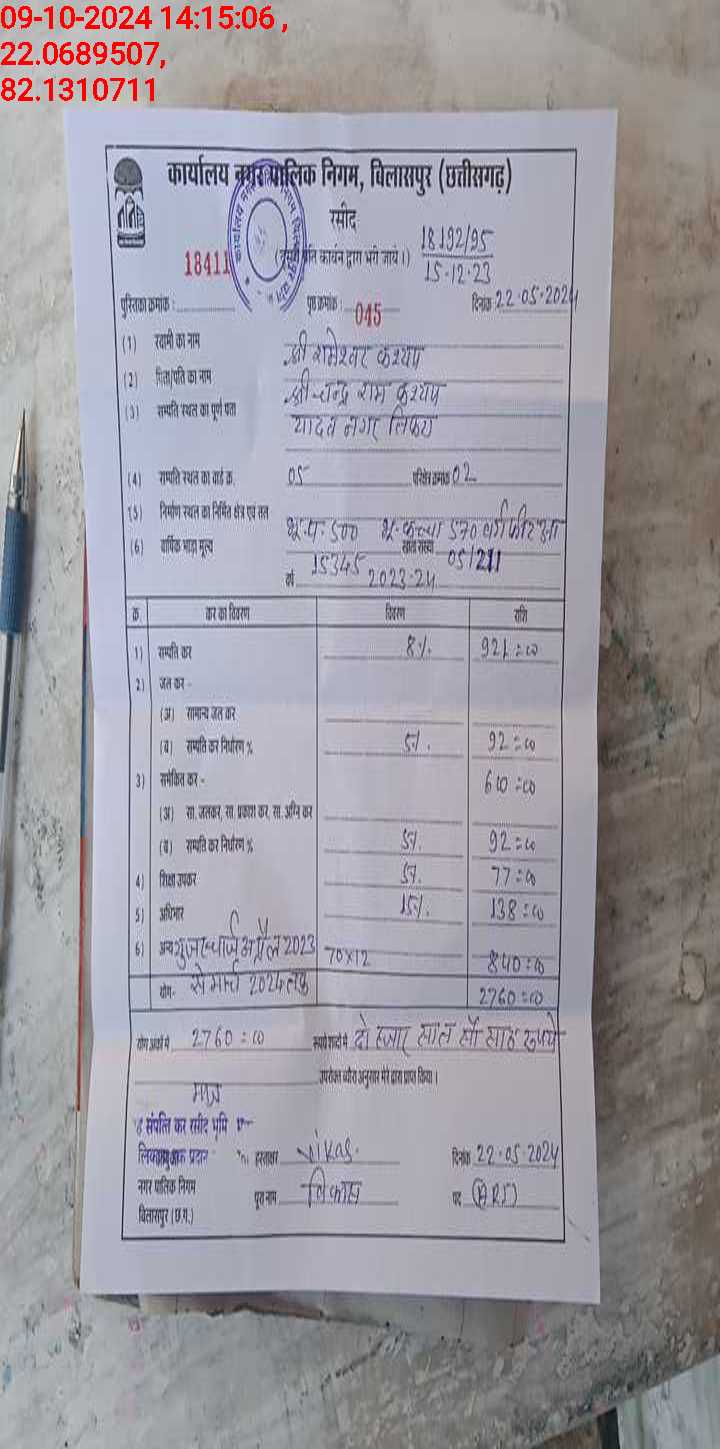 09-10-2024 14:15:06 ,
22.0689507,
82.1310711
कार्यालय नगर पालिक निगम, बिलासपुर (छत्तीसगढ़)
रसीद
18192/95
18411 (दूसरी प्रति कार्बन द्वारा भरी जाये।) 15-12-23
पुस्तिका क्रमांक : पृष्ठ क्रमांक : 045 दिनांक 22-05-2024
(1) स्वामी का नाम श्री रामेश्वर कश्यप
(2) पिता/पति का नाम श्री चन्द्र राम कश्यप
(3) सम्पत्ति स्थल का पूर्ण पता यादव नगर तिफरा
(4) सम्पत्ति स्थल का वार्ड क्र. 05 परिक्षेत्र क्रमांक 02
(5) निर्माण स्थल का निर्मित क्षेत्र एवं तल भू.प. 500 भू-कच्चा 570 वर्गफीट
(6) वार्षिक भाड़ा मूल्य 15345 05/211
वर्ष 2023-24
क्र. कर का विवरण विवरण राशि
1) सम्पत्ति कर 8%. 921=00
2) जल कर -
(अ) सामान्य जल कर
(ब) सम्पत्ति कर निर्धारण % 5%. 92=00
3) समेकित कर - 600=00
(अ) सा. जलकर, सा. प्रकाश कर, सा. अग्नि कर
(ब) सम्पत्ति कर निर्धारण % 5%. 92=00
4) शिक्षा उपकर 5%. 77=00
5) अधिभार 15%. 138=00
6) अन्य यूजर चार्ज अप्रैल 2023 70x12 840=00
योग- से मार्च 2024 तक 2760=00
योग अंकों में 2760=00 रूपये शब्दों में दो हजार सात सौ साठ रूपये
उपरोक्त ब्यौरा अनुसार मेरे द्वारा प्राप्त किया।
मात्र
संपत्ति कर रसीद भूमि
प्रदान हस्ताक्षर Vikas. दिनांक 22-05-2024
नगर पालिक निगम पूरा नाम विकास पद (ARI)
बिलासपुर (छ.ग.)